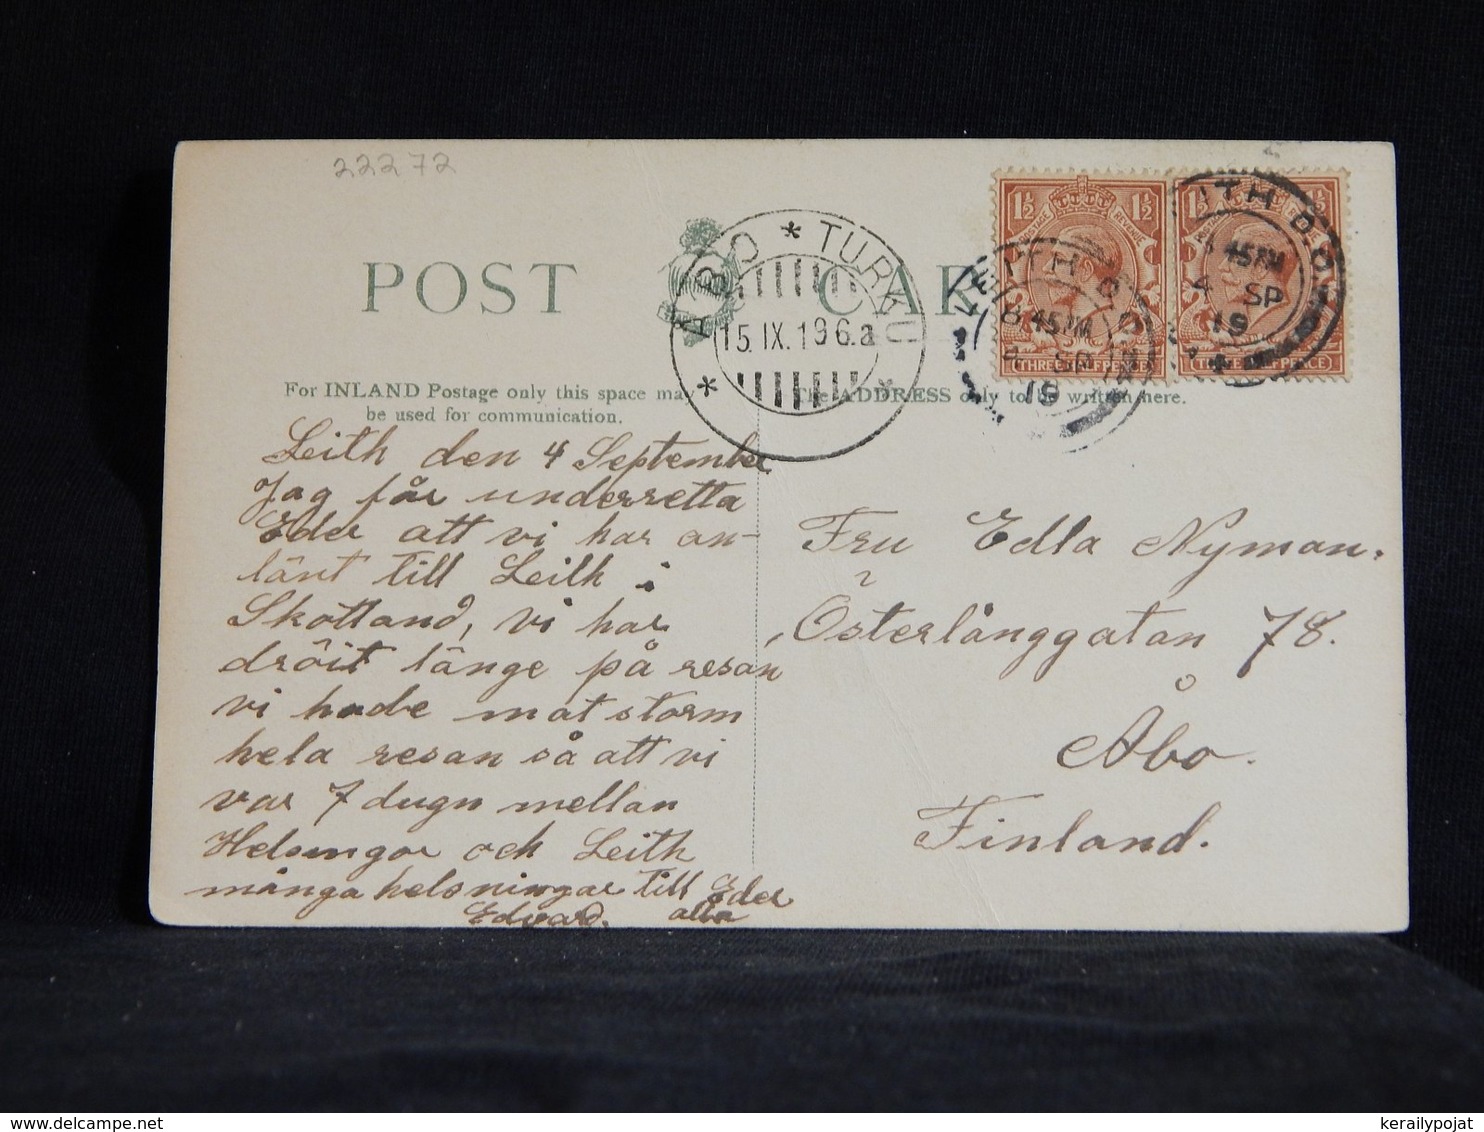 22272
POST CAR
ÅBO * TURKU
15.IX.19 6.a
* *
1½ 1½
POSTAGE REVENUE
1½ 1½
LEITH
8.45PM
SP
19
THREE HALFPENCE
LEITH
45PM
4 SP
19
THREE HALFPENCE
For INLAND Postage only this space may
be used for communication.
The ADDRESS only to be written here.
Leith den 4 September
Jag får underretta
Eder att vi har an-
länt till Leith i
Skottland, vi har
dröit länge på resan
vi hade mot storm
hela resan så att vi
var 7 dygn mellan
Helsingör och Leith
många helsningar till Eder
alla
Edvard.
Fru Edla Nyman.
Österlånggatan 78.
Åbo.
Finland.
delcampe.net
kerailypojat